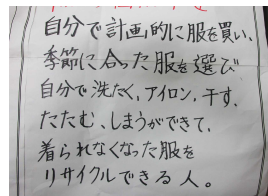 自分で計画的に服を買い、
季節に合った服を選び
自分で洗たく、アイロン、干す、
たたむ、しまうができて、
着られなくなった服を
リサイクルできる人。